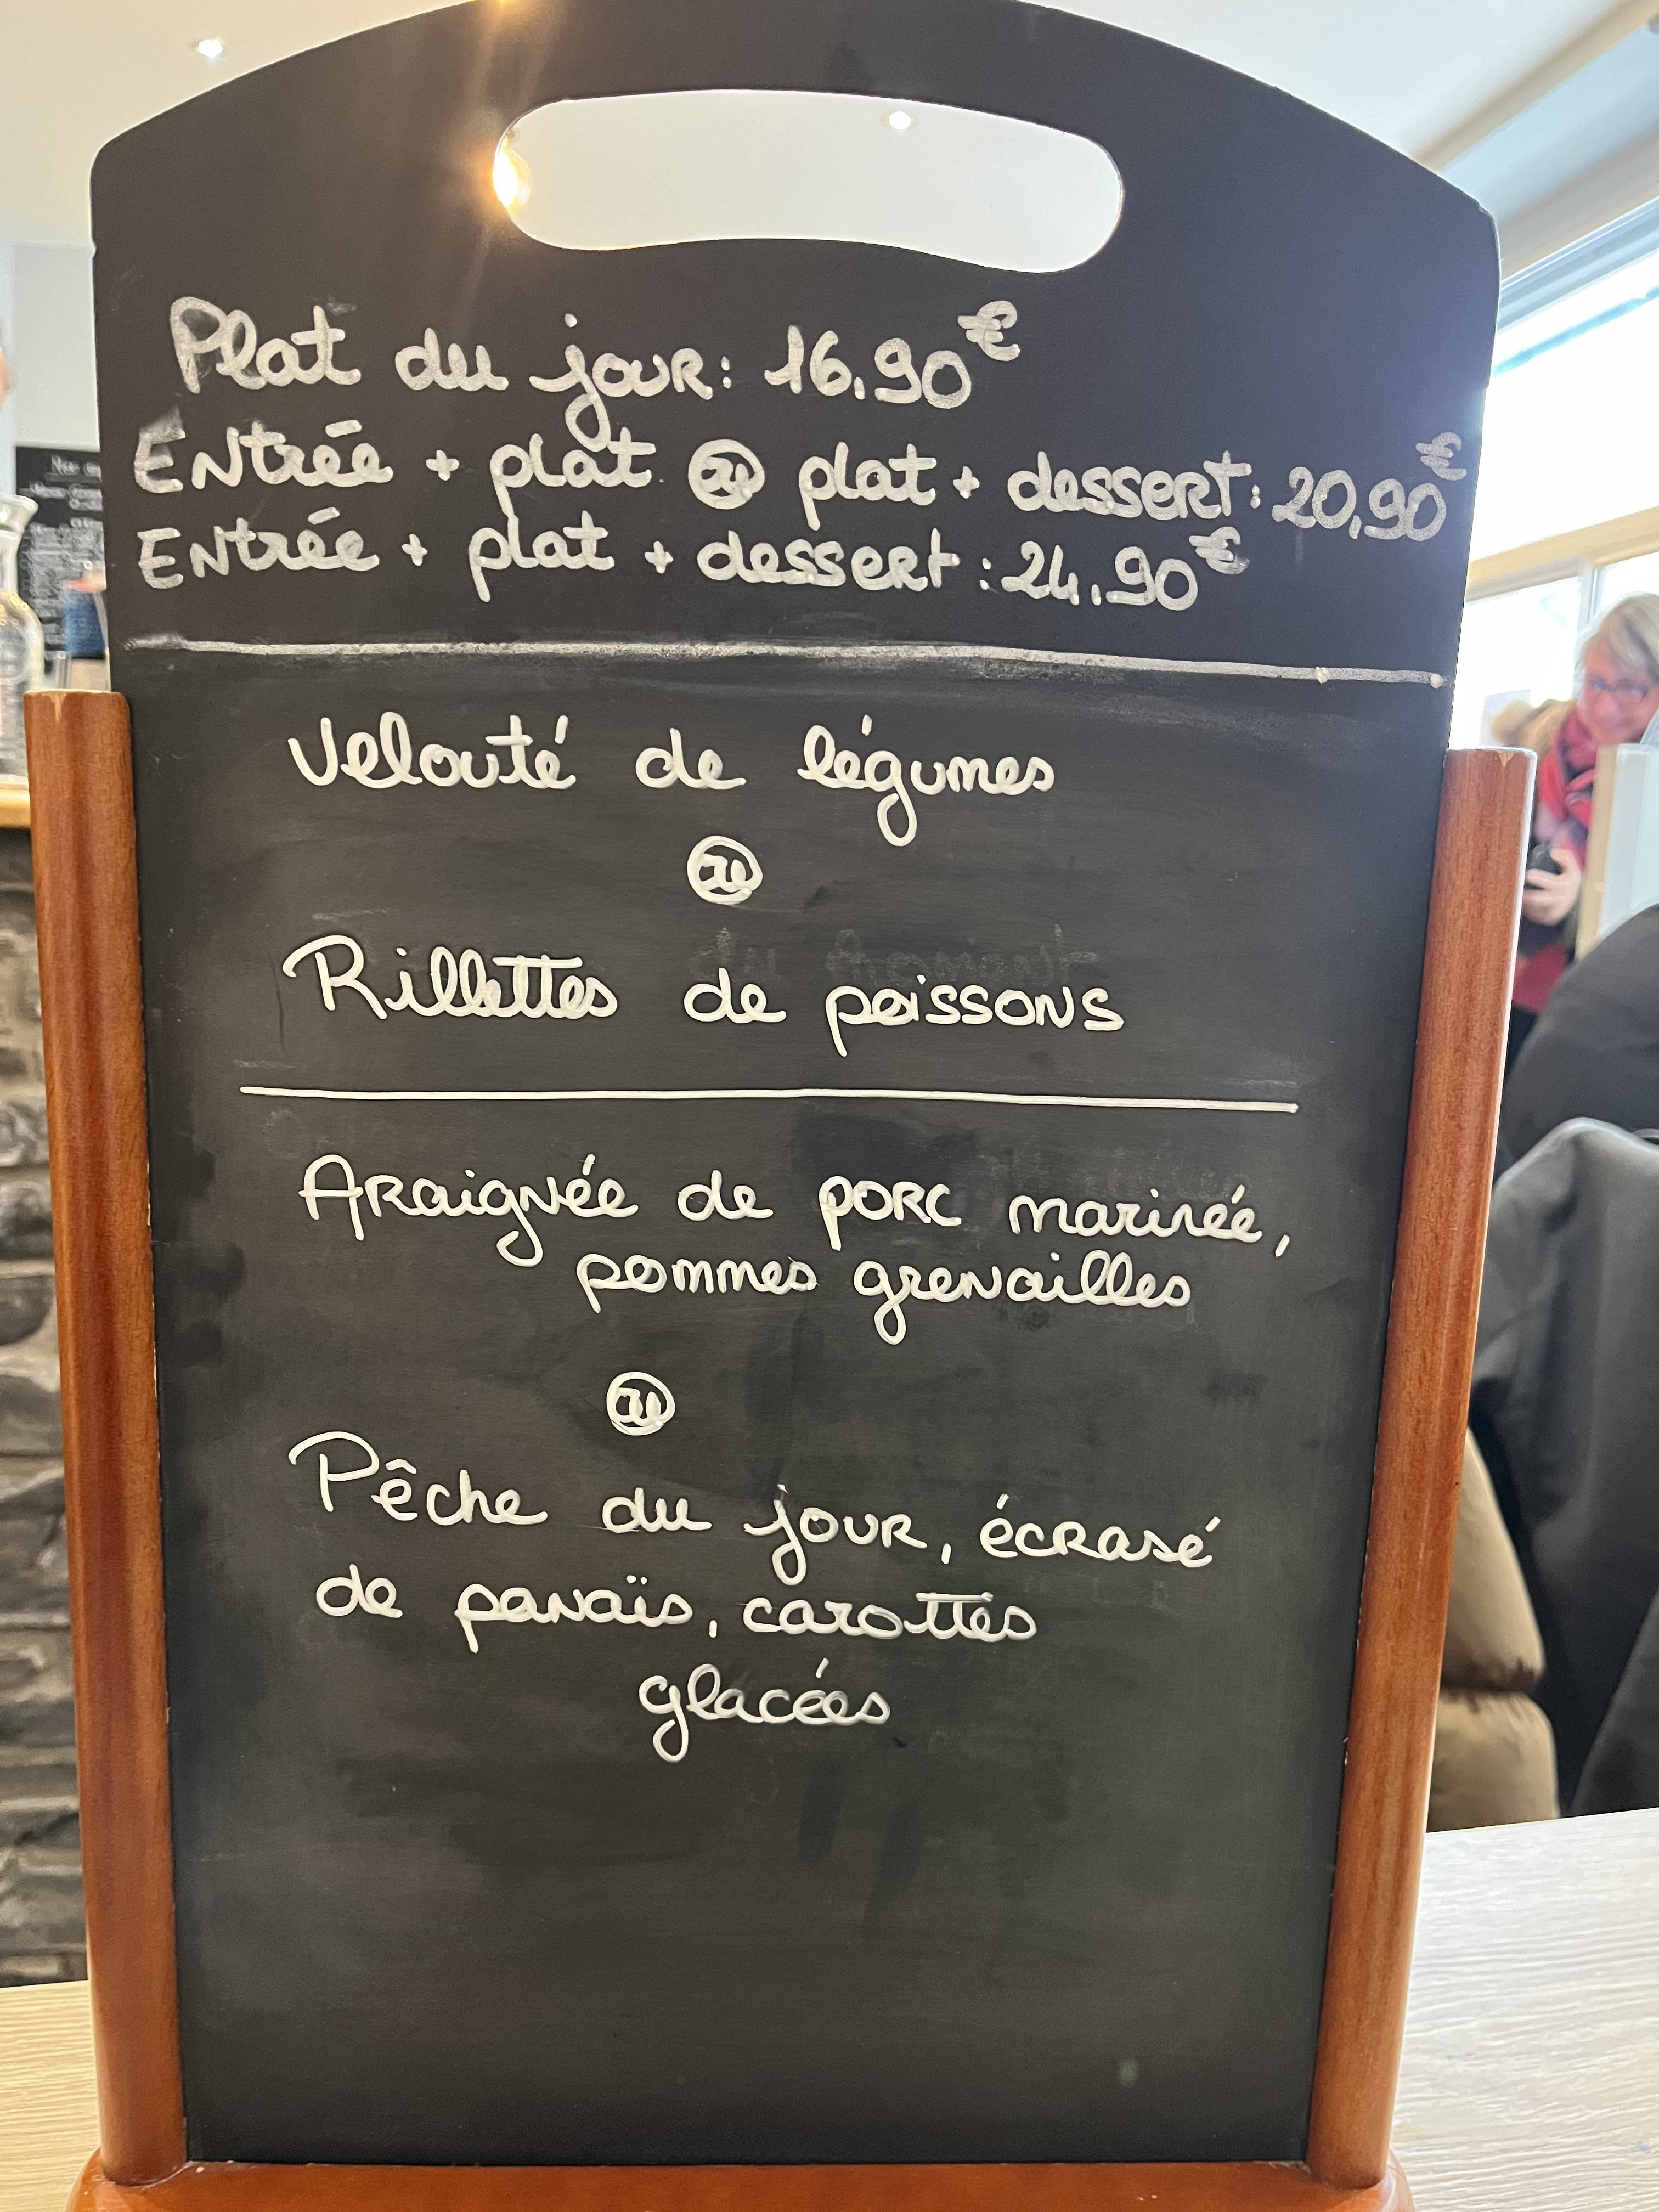 Plat du jour: 16,90€
Entrée + plat ou plat + dessert: 20,90€
Entrée + plat + dessert: 24,90€
Velouté de légumes
ou
Rillettes de poissons
Araignée de porc marinée,
pommes grenailles
ou
Pêche du jour, écrasé
de panaïs, carottes
glacées